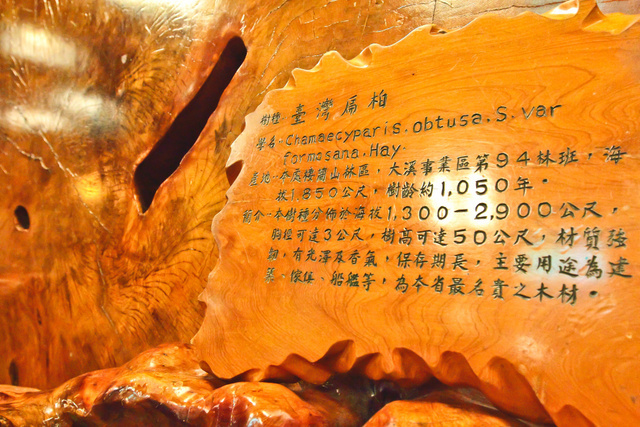 樹種 臺灣扁柏
學名·Chamaecyparis.obtusa.S.var
formosana.Hay.
產地·本處樓蘭山林區，大溪事業區第94林班，海
拔1,850公尺，樹齡約1,050年。
簡介·本樹種分佈於海拔1,300-2,900公尺，
胸徑可達3公尺，樹高可達50公尺，材質強
韌，有光澤及香氣，保存期長，主要用途為建
築、傢俱、船艦等，為本省最名貴之木材。